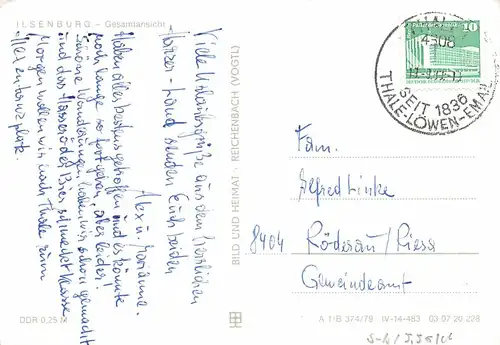 ILSENBURG – Gesamtansicht
Viele Urlaubsgrüße aus dem herrlichen
Harzer-Land senden Euch beiden
Alex u. Marianne.
Haben alles bestens getroffen und es könnte
noch lange so fortgehen, aber leider!
Schöne Wanderungen haben wir schon gemacht
und das Hasseröder Bier schmeckt Klasse.
Morgen wollen wir nach Thale zum
Hexentanzplatz.
DDR 0,25 M
BILD UND HEIMAT · REICHENBACH (VOGTL)
10
4308
SEIT 1836
THALE-LÖWEN-EMAIL
Fam.
Alfred Linke
8404 Röderau/Riesa
Gemeindeamt
A 1/B 374/79 IV-14-483 03 07 20 228